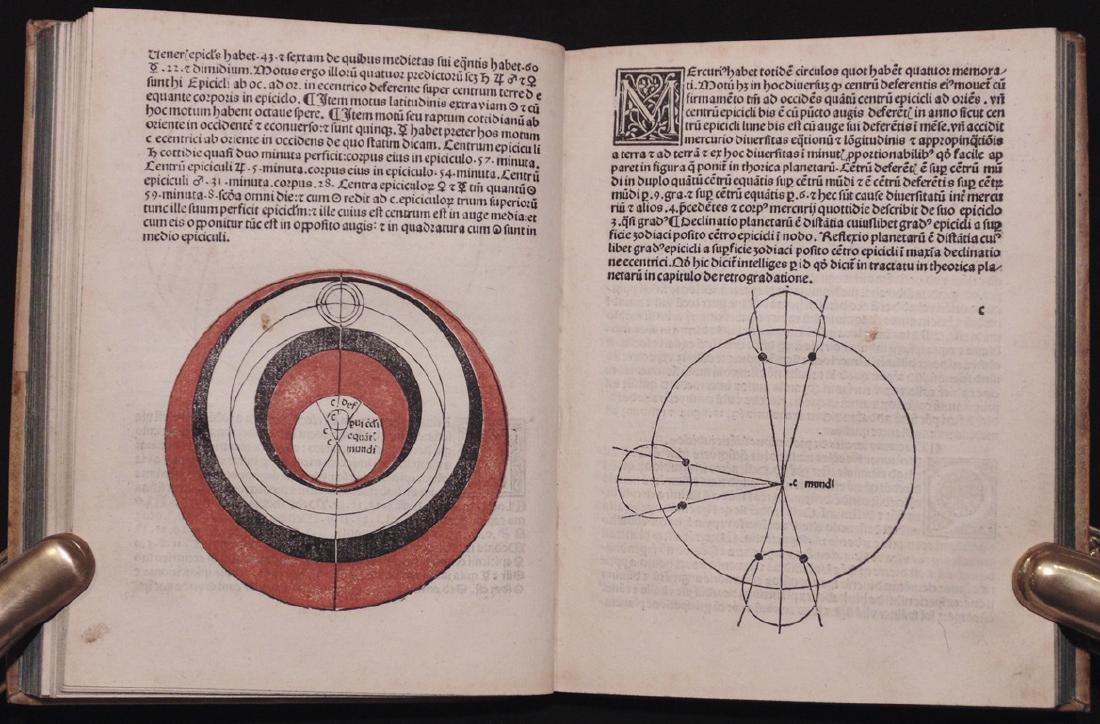 Ueneris epicls habet .43. ⁊ sextam de quibus medietas sui eq̄ntis habet .60
☿ .22. ⁊ dimidium. Motus ergo illorū quatuor predictorū scz ♄ ♃ ♂ ⁊ ♀
sunt hi Epicicli ab oc. ad or. in ecentrico deferente super centrum terre de
equante corporis in epiciclo. ¶ Item motus latitudinis extra viam ☉ ⁊ cū
hoc motum habent octaue spere. ¶ Item motū seu raptum cottidianū ab
oriente in occidentē ⁊ econuerso: ⁊ sunt quinq. ☿ habet preter hos motum
c eccentrici ab oriente in occidens de quo statim dicam. Centrum epicicli
♄ cottidie quasi duo minuta perficit: corpus eius in epiciculo .57. minuta.
Centrū epiciculi ♃ .5. minuta. corpus eius in epiciculo .54. minuta. Centrū
epiciculi ♂ .31. minuta. corpus .28. Centra epiciculoꝝ ♀ ⁊ ☿ tm̄ quantū ☉
59. minuta .8. scōa omni die: ⁊ cum ☉ redit ad c. epiciculoꝝ trium superiorū
tunc ille suum perficit epiciclm̄: ⁊ ille cuius est centrum est in auge media: et
cum eis opponitur tūc est in opposito augis: ⁊ in quadratura cum ☉ sunt in
medio epiciculi.
c def
c
c pui ēcli
equāt.
c mundi
MErcuriꝰ habet totidē circulos quot habēt quatuor memora-
ti. Motū hꝫ in hoc diuersuꝫ ꝙ centrū deferentis eiꝰ mouet̄ cū
firmamēto tm̄ ad occidēs quātū centrū epicicli ad oriēs. vn̄
centrū epicicli bis ē cū pūcto augis deferēt{ in anno sicut cen
trū epicicli lune bis est cū auge sui deferētis ī mēse. vn̄ accidit
mercurio diuersitas eq̄tionū ⁊ lōgitudinis ⁊ appropinq̄tiōis
a terra ⁊ ad terrā ⁊ ex hoc diuersitas ī minut{ ꝓportionabilibꝰ qd̓ facile ap
paret in figura q̄ ponit̄ in thorica planetarū. Cētrū deferēt{ ē sup̱ cētrū mū
di in duplo quātū cētrū equātis sup̱ cētrū mūdi ⁊ ē cētrū deferētis sup̱ cētꝝ
mūdi p̱ .9. gra. ⁊ sup̱ cētrū equātis p̱ .6. ⁊ hec sūt cause diuersitatū int̄ mercu
riū ⁊ alios .4. p̄cedētes ⁊ corpꝰ mercurij quottidie describit de suo epiciclo
3. q̄si gradꝰ ¶ Declinatio planetarū ē distātia cuiuslibet gradꝰ epicicli a sup̱
ficie zodiaci posito cētro epicicli ī nodo. Reflexio planetarū ē distātia cuiꝰ
libet gradꝰ epicicli a sup̱ficie zodiaci posito cētro epicicli ī maxīa declinatio
ne eccentrici. Qd̓ hic dicit̄ intelliges p̱ id qd̓ dicit̄ in tractatu in theorica pla-
netarū in capitulo de retrogradatione.
c
.c mundi